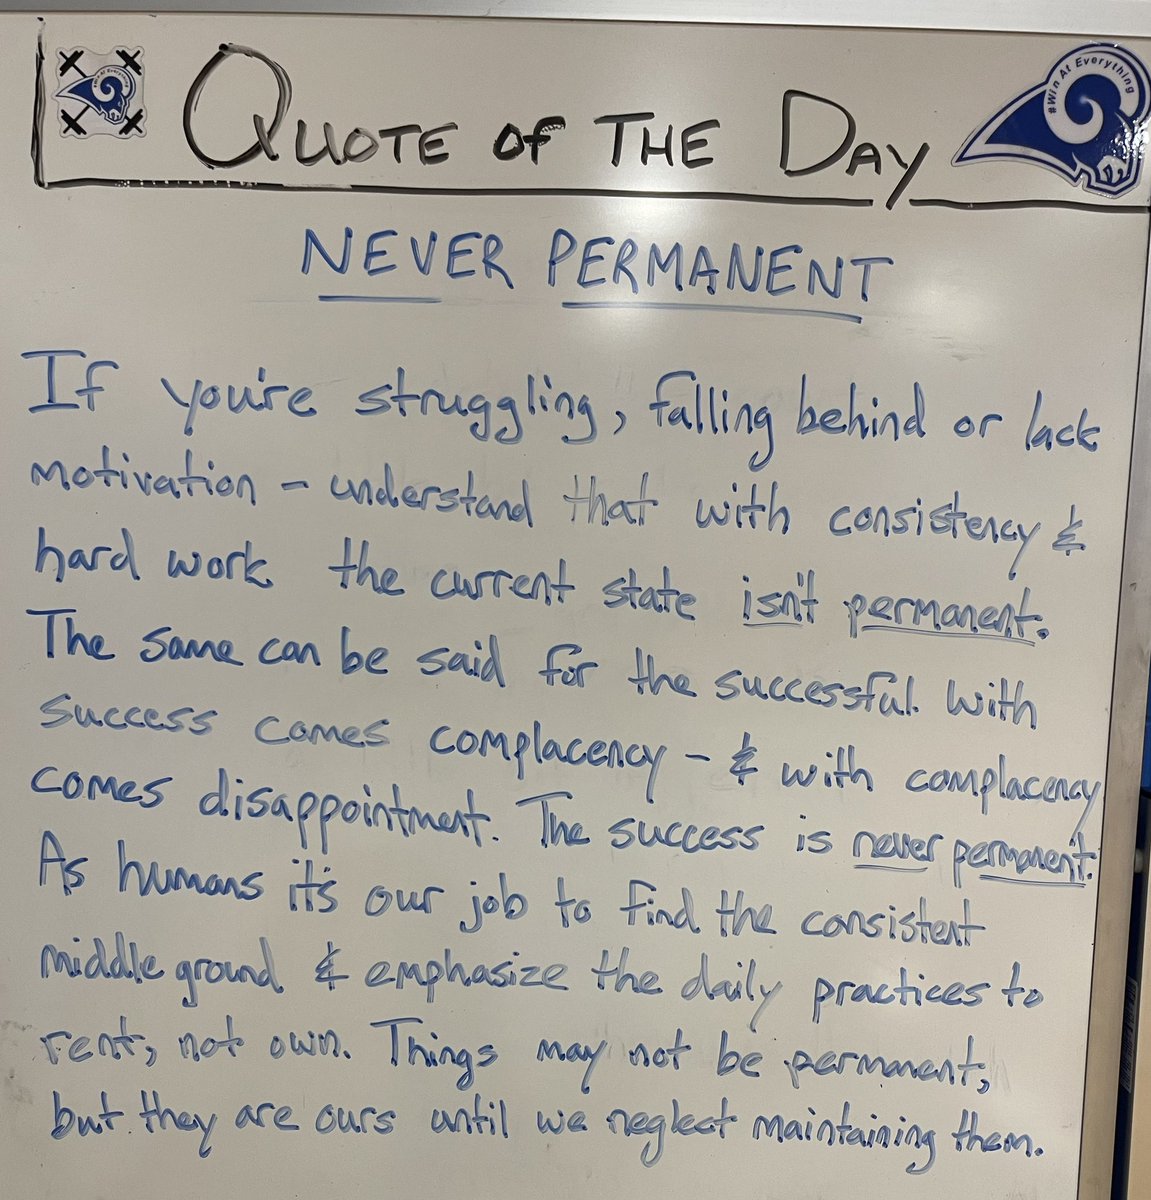 #Win At Everything
QUOTE of THE DAY
#Win At Everything
NEVER PERMANENT
If you're struggling, falling behind or lack
motivation - understand that with consistency &
hard work the current state isn't permanent.
The same can be said for the successful with
success comes complacency - & with complacency
comes disappointment. The success is never permanent.
As humans it's our job to find the consistent
middle ground & emphasize the daily practices to
rent, not own. Things may not be permanent,
but they are ours until we neglect maintaining them.